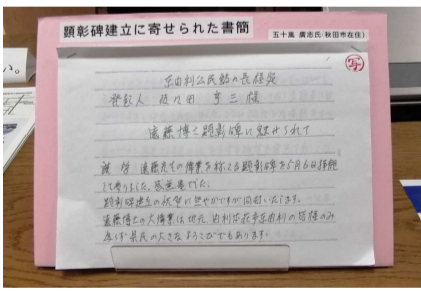 顕彰碑建立に寄せられた書簡
五十嵐 廣志氏(秋田市在住)
写
い。
東由利公民館の長様宛
発起人 佐々田 亨三 様
遠藤博士顕彰碑に魅せられて
遠藤先生の偉業を称える顕彰碑を5月6日拝観
して参りました。感無量でした。
顕彰碑建立の祝賀に些やかですが同封いたします。
遠藤博士の大偉業は地元、由利本荘市東由利の皆様のみ
ならず県民の大きなよろこびでもあります。